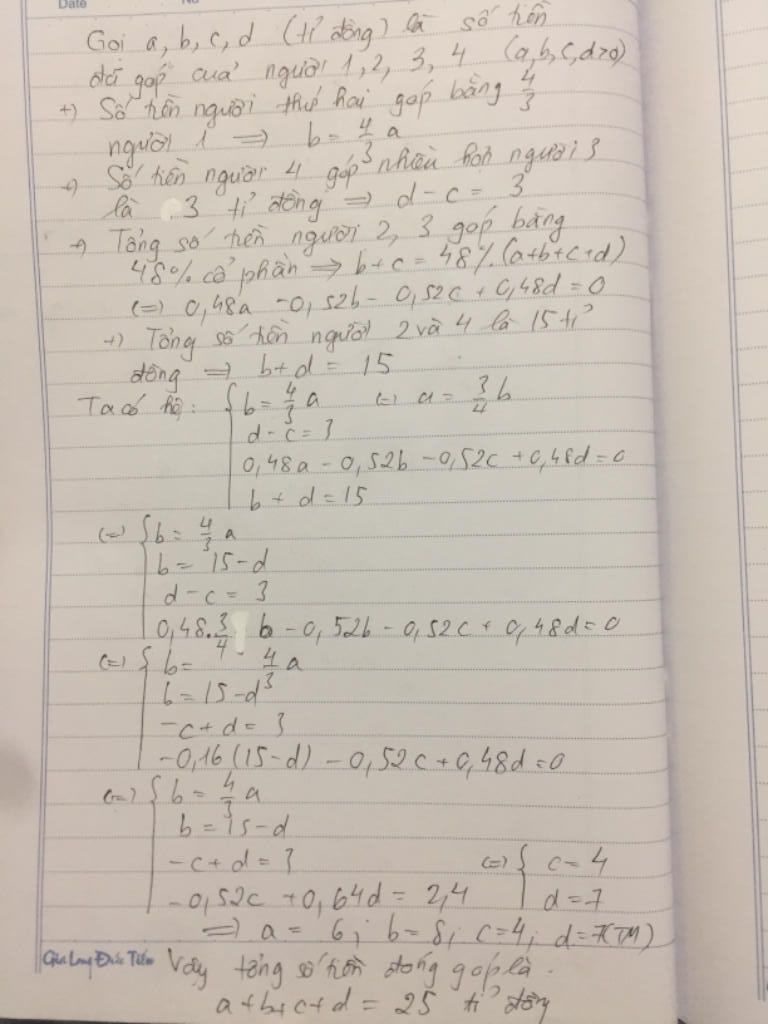 Date No
Gọi a, b, c, d (tỉ đồng) là số tiền
đã góp của người 1, 2, 3, 4 (a,b,c,d>0)
+) Số tiền người thứ hai góp bằng 4/3
người 1 => b = 4/3 a
+) Số tiền người 4 góp nhiều hơn người 3
là 3 tỉ đồng => d - c = 3
+) Tổng số tiền người 2, 3 góp bằng
48% cổ phần => b + c = 48% (a+b+c+d)
(=) 0,48a - 0,52b - 0,52c + 0,48d = 0
+) Tổng số tiền người 2 và 4 là 15 tỉ
đồng => b + d = 15
Ta có hệ: { b = 4/3 a (=) a = 3/4 b
d - c = 3
0,48a - 0,52b - 0,52c + 0,48d = 0
b + d = 15
(=) { b = 4/3 a
b = 15 - d
d - c = 3
0,48.3/4 b - 0,52b - 0,52c + 0,48d = 0
(=) { b = 4/3 a
b = 15 - d
-c + d = 3
-0,16(15-d) - 0,52c + 0,48d = 0
(=) { b = 4/3 a
b = 15 - d
-c + d = 3 (=) { c = 4
-0,52c + 0,64d = 2,4 d = 7
=> a = 6; b = 8; c = 4; d = 7(TM)
Gia Long Đức Tiến Vậy tổng số tiền đóng góp là
a+b+c+d = 25 tỉ đồng